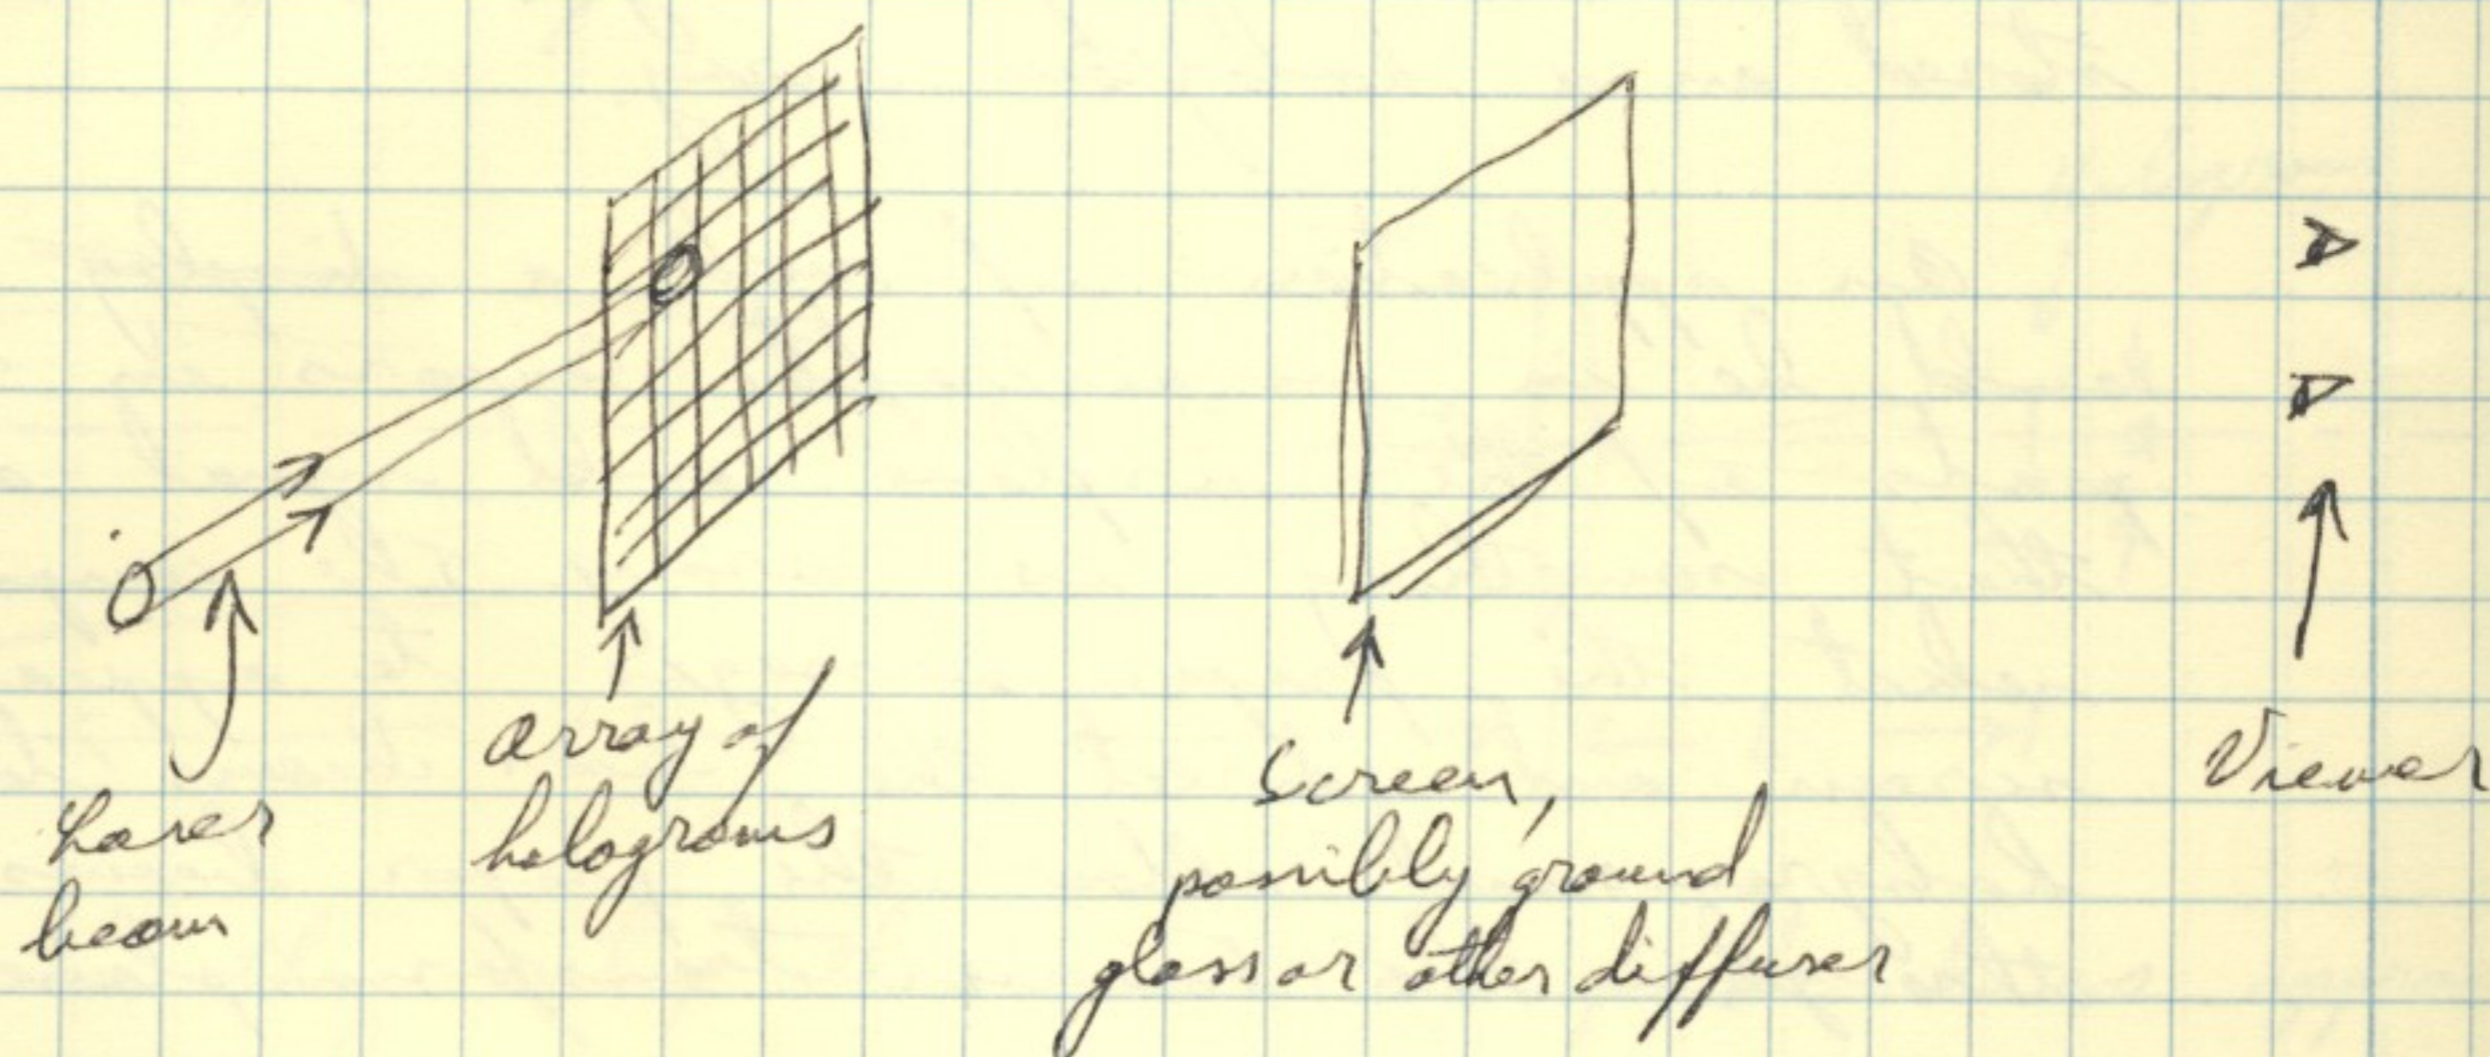 Laser
beam
array of
holograms
Screen,
possibly ground
glass or other diffuser
Viewer